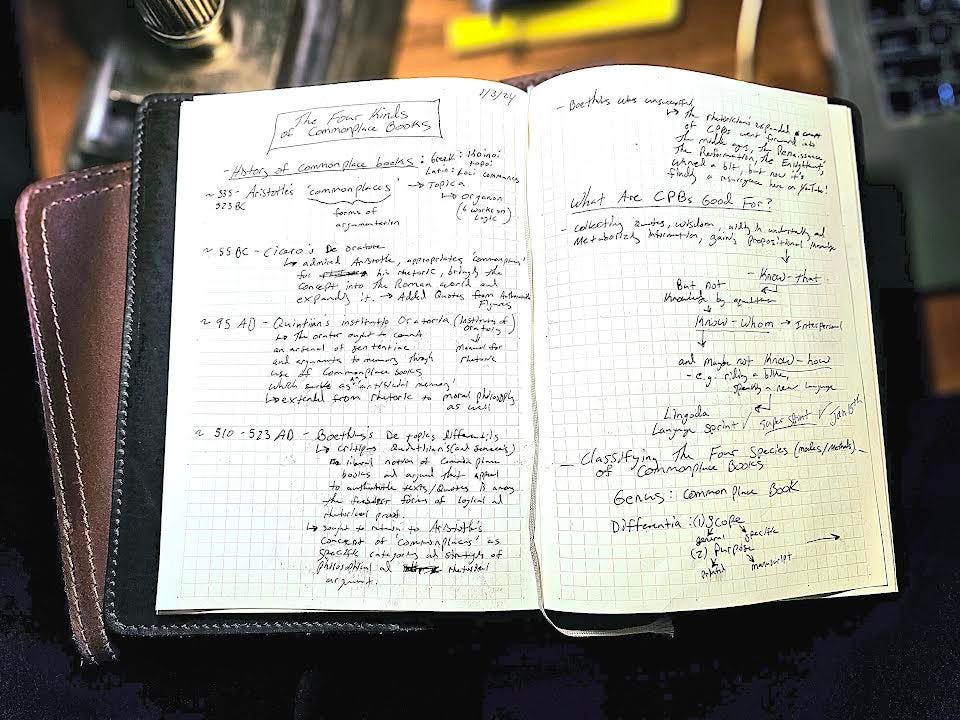 1/3/24
The Four Kinds
of Commonplace Books
- History of commonplace books : Greek : Koinoi
topoi
Latin : Loci communes
~ 335- Aristotle's 'commonplaces' → Topica
323 BC
↳ Organon
forms of
(6 works on
argumentation
Logic)
~ 55 BC - Cicero's De Oratore
↳ admired Aristotle, appropriates 'commonplaces'
for his rhetoric, brings the
concept into the Roman world and
expands it. → Added Quotes from Authoritative
Figures
~ 95 AD - Quintilian's institutio Oratoria (Institutes of
Oratory)
↳ The orator ought to commit
an arsenal of sententiae
manual for
and arguments to memory through
rhetoric
use of commonplace books
which serve as an 'artificial memory'
↳ extended from rhetoric to moral philosophy
as well
~ 510 - 523 AD - Boethius's De topicis differentiis
↳ critiques Quintilian's (and Seneca's)
liberal notion of Commonplace
books and argued that appeal
to authoritative texts/Quotes is among
the weakest forms of logical and
rhetorical proof.
↳ sought to return to Aristotle's
concept of 'commonplaces' as
specific categories and strategies of
philosophical and rhetorical
argument.
- Boethius was unsuccessful
↳ the rhetorician's expanded concept
of CPBs went forward into
the middle ages, the Renaissance,
the Reformation, the Enlightenment,
waned a bit, but now it's
finding a resurgence here on YouTube!
What Are CPBs Good For?
- Collecting quotes, wisdom, and
Metabolizing information, gaining propositional knowledge
- Know-that
But not
Knowledge by acquaintance
Know-Whom → Interpersonal
and maybe not Know-how
- e.g. riding a bike,
speaking a new language
Lingoda
Language sprint ✓ super sprint ✓ Jan 15th
- Classifying The Four Species (modes/methods)
of Commonplace Books
Genus: Commonplace Book
Differentia : (1) Scope
general specific
(2) Purpose
manuscript